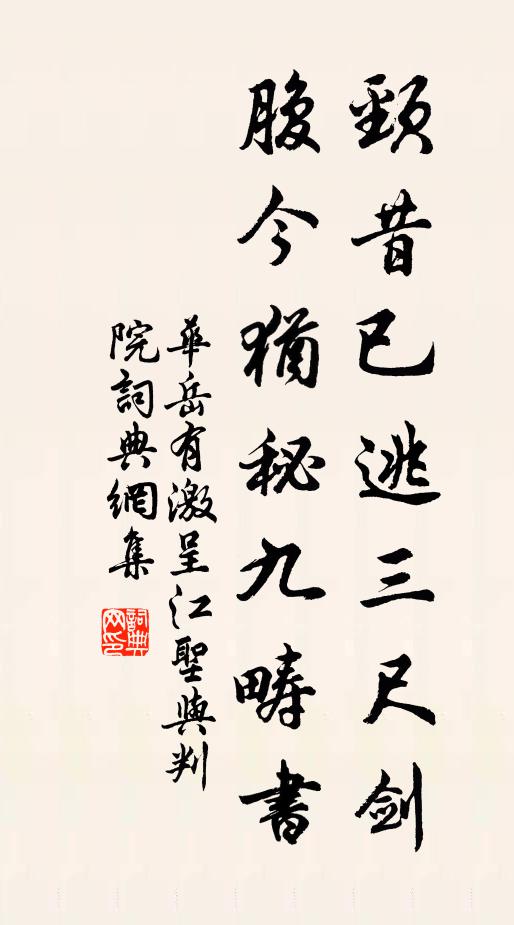 頸昔已逃三尺劍
腹今猶秘九疇書
華岳有激呈江聖與判
院詞典網集
詞典網印